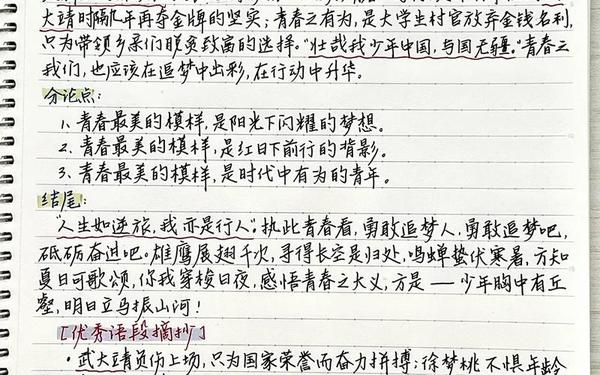 大靖时隔八年再夺金牌的坚实；青春之有为，是大学生村官放弃金钱名利，
只为带领乡亲们脱贫致富的选择。"壮哉我少年中国，与国无疆。"青春之
我们，也应该在追梦中出彩，在行动中升华。
分论点：
1、青春最美的模样，是阳光下闪耀的梦想。
2、青春最美的模样，是红日下前行的背影。
3、青春最美的模样，是时代中有为的青年。
结尾：
"人生如逆旅，我亦是行人"，执此青春看，勇敢追梦人，勇敢追梦吧，
砥砺奋进吧。雄鹰展翅千次，寻得长空是归处，鸣蝉蛰伏寒暑，方知
夏日可歌颂，你我穿梭日夜，感悟青春之大义，方是——少年胸中有丘
壑，明日立马振山河！
[优秀语段摘抄]
·武大靖负伤上场，只为国家荣誉而奋力拼搏；徐梦桃不惧年龄